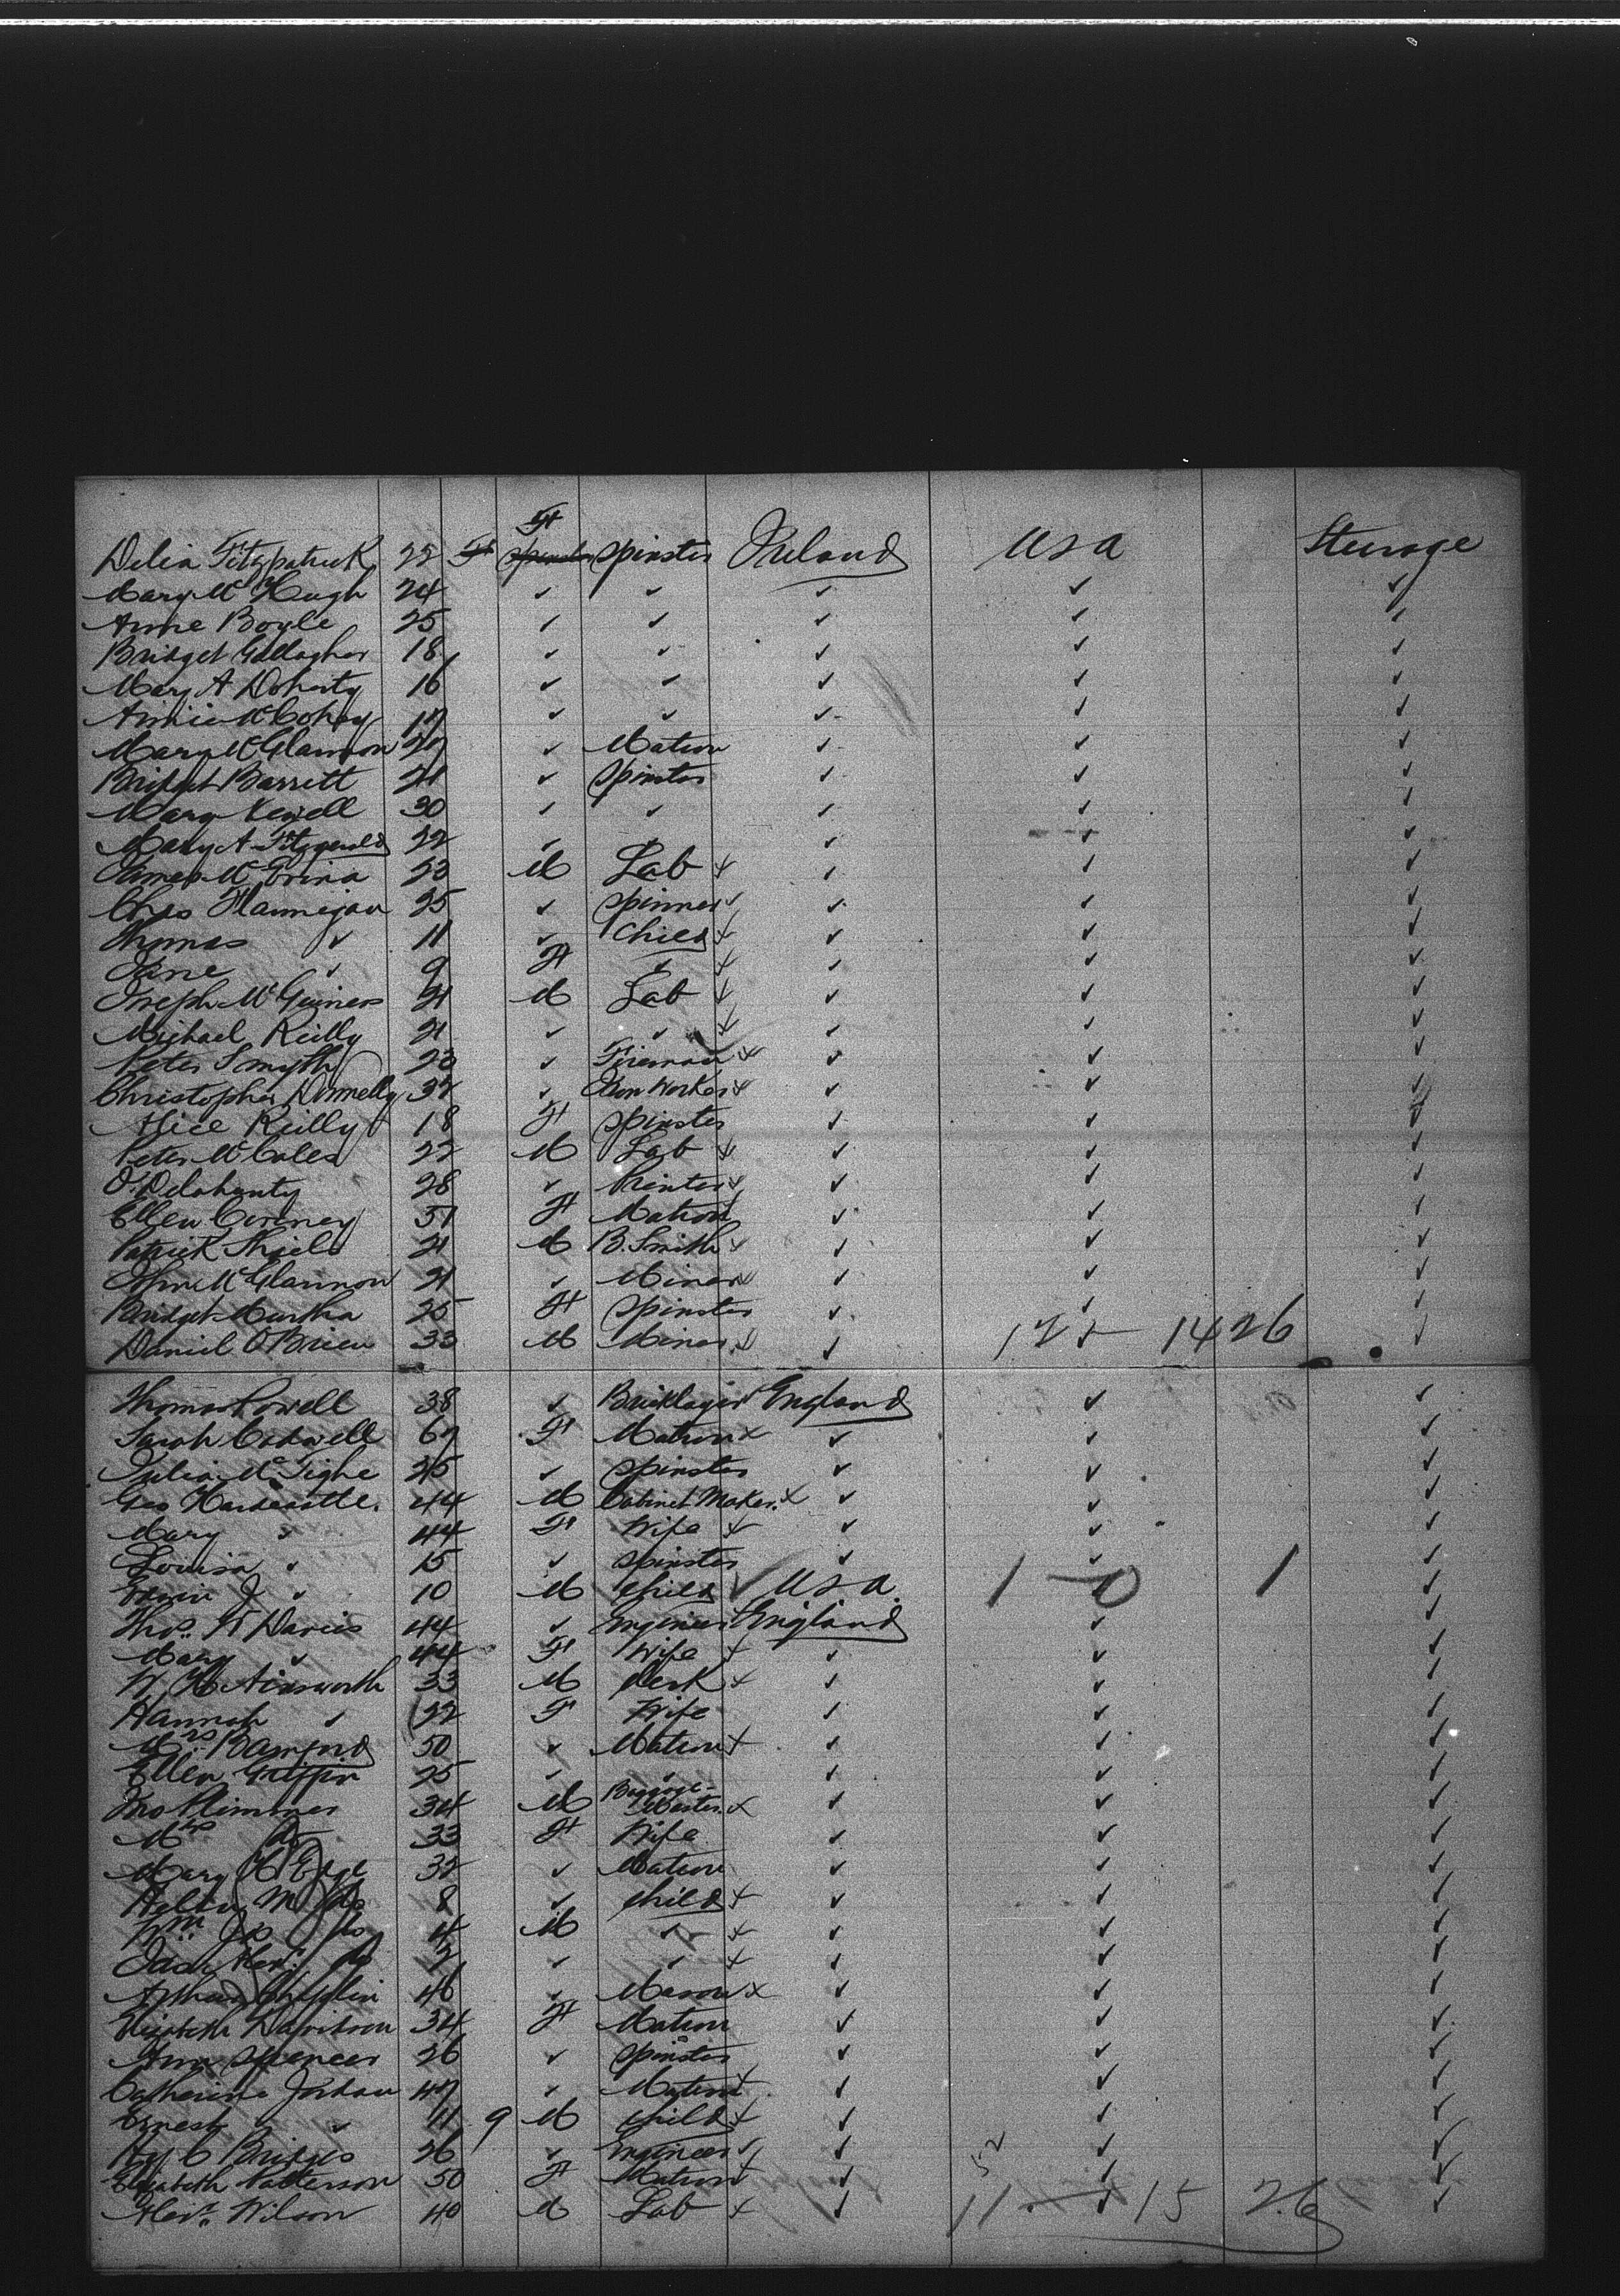 Delia Fitzpatrick 22 F F spinster spinster Ireland USA Steerage
Mary McHugh 24 ✓ ✓ ✓ ✓ ✓
Anne Boyle 25 ✓ ✓ ✓ ✓ ✓
Bridget Gallagher 18 ✓ ✓ ✓ ✓ ✓
Mary A Doherty 16 ✓ ✓ ✓ ✓ ✓
Annie 17 ✓ ✓ ✓ ✓ ✓
Mary McGlannon 27 ✓ Matron ✓ ✓ ✓
Bridget Barrett 21 ✓ Spinster ✓ ✓ ✓
Mary 30 ✓ ✓ ✓ ✓ ✓
Mary A Fitzgerald 22 ✓ ✓ ✓ ✓
James 23 M Lab ✓ ✓ ✓
Chas Flannigan 25 ✓ Spinner ✓ ✓ ✓
Thomas ✓ 11 ✓ Child ✓ ✓ ✓
Jane ✓ 9 F ✓ ✓ ✓ ✓
Joseph McGuiness 21 M Lab ✓ ✓ ✓
Michael Reilly 21 ✓ ✓ ✓ ✓ ✓
Peter Smyth 23 ✓ Fireman ✓ ✓ ✓
Christopher Donnelly 32 ✓ Iron Worker ✓ ✓ ✓
Alice Reilly 18 F Spinster ✓ ✓ ✓
Peter 22 M Lab ✓ ✓ ✓
O. Delahunty 28 ✓ Printer ✓ ✓ ✓
Ellen 51 F Matron ✓ ✓ ✓
Patrick Shiels 21 M B. Smith ✓ ✓ ✓
John McGlannon 21 ✓ Miner ✓ ✓ ✓
Bridget Murtha 25 F Spinster ✓ ✓ ✓
Daniel O'Brien 33 M Miner ✓ 12 14 26 ✓
Thomas Powell 38 ✓ Bricklayer England ✓ ✓
Sarah 67 F Matron ✓ ✓ ✓
Julia McTighe 25 ✓ Spinster ✓ ✓ ✓
Geo Hardcastle. 44 M Cabinet Maker. ✓ ✓ ✓
Mary ✓ 44 F Wife ✓ ✓ ✓
Louisa ✓ 15 ✓ Spinster ✓ ✓ ✓
J ✓ 10 M Child USA 1 - 0 1 ✓
Thos. Davies 44 ✓ Engineer England ✓ ✓
Mary ✓ 44 F Wife ✓ ✓ ✓
W H Ainsworth 33 M Clerk ✓ ✓ ✓
Hannah ✓ 22 F Wife ✓ ✓ ✓
Mrs. Bamford 50 ✓ Matron ✓ ✓ ✓
Ellen Griffin 25 ✓ ✓ ✓ ✓ ✓
Jno Plimmer 34 M Baggage-Master ✓ ✓ ✓
Mrs do 33 F Wife ✓ ✓ ✓
Mary H Edge 32 ✓ Matron ✓ ✓ ✓
M do 8 ✓ Child ✓ ✓ ✓
Wm. Jas do 4 M ✓ ✓ ✓ ✓
do 2 ✓ ✓ ✓ ✓ ✓
Arthur 46 ✓ Mason ✓ ✓ ✓
Elizabeth Davidson 34 F Matron ✓ ✓ ✓
Ann Spencer 26 ✓ Spinster ✓ ✓ ✓
Catherine Jordan 47 ✓ Matron ✓ ✓ ✓
Ernest ✓ 11 9 M Child ✓ ✓ ✓
C Bridges 26 ✓ Engineer ✓ ✓ ✓
Elizabeth Patterson 50 F Matron ✓ 52 ✓ ✓
Alexr. Wilson 40 M Lab ✓ 11 ✓ 15 26 ✓